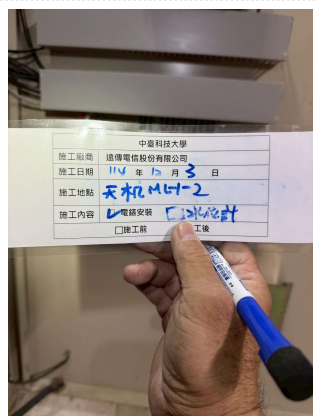 中臺科技大學
施工廠商 遠傳電信股份有限公司
施工日期 114 年 12 月 3 日
施工地點 天机 MLH-2
施工內容 ✓電錶安裝 □水位計
□施工前 工後